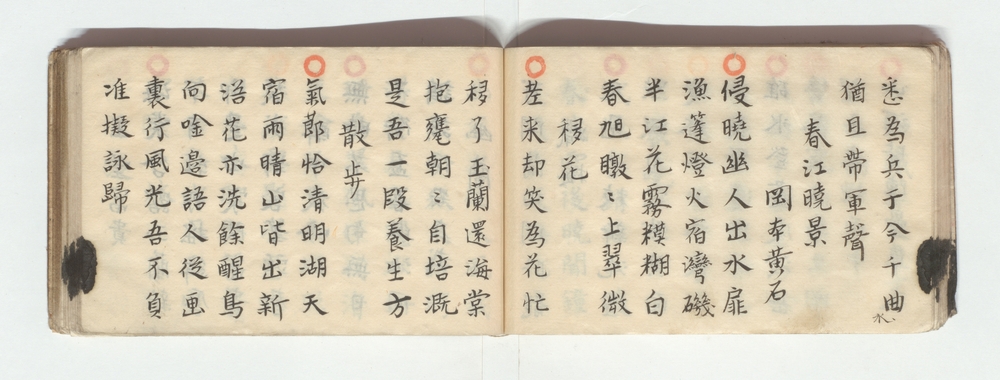 悉為兵子今千曲
水
猶且帶軍聲
春江曉景
岡本黄石
侵曉幽人出水扉
漁篷燈火宿灣磯
半江花霧糢糊白
春旭暾〻上翠微
移花
老来却笑為花忙
移了玉蘭還海棠
抱甕朝〻自培溉
是吾一段養生方
散步
氣節恰清明湖天
宿雨晴山皆出新
浴花亦洗餘醒鳥
向唫邊語人從画
裏行風光吾不負
准擬詠歸